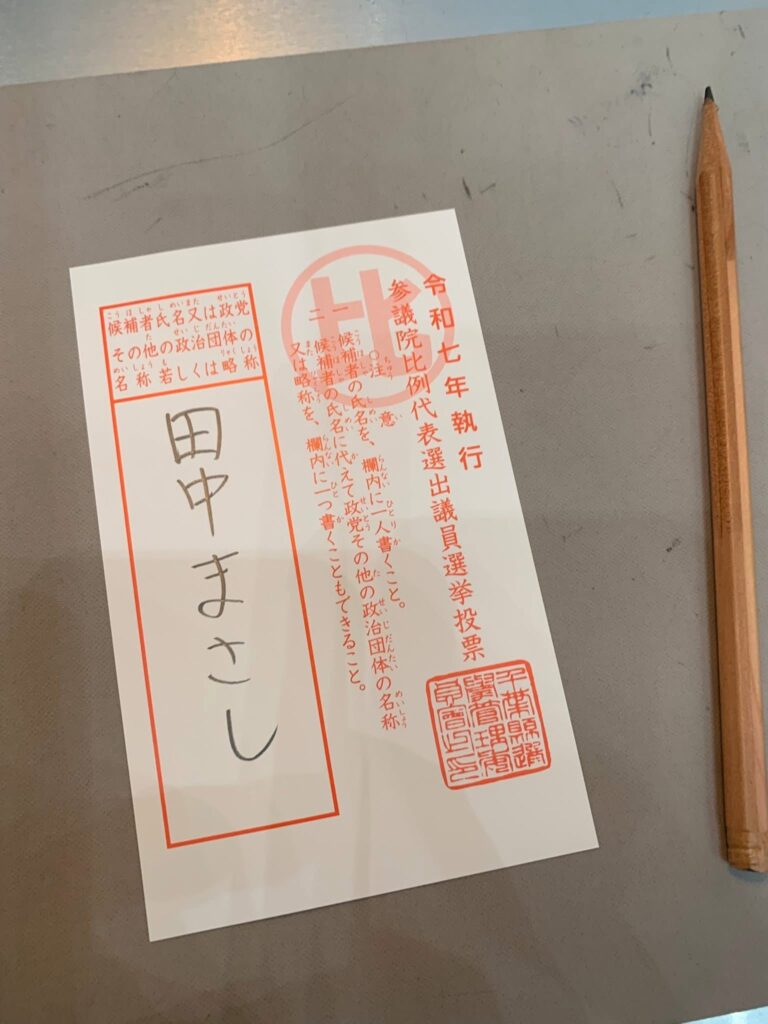 令和七年執行
参議院比例代表選出議員選挙投票
比
○注意
一 候補者の氏名を、欄内に一人書くこと。
二 候補者の氏名に代えて政党その他の政治団体の名称
又は略称を、欄内に一つ書くこともできること。
候補者氏名又は政党
その他の政治団体の
名称若しくは略称
田中まさし
千葉縣選
擧管理委
員會之印